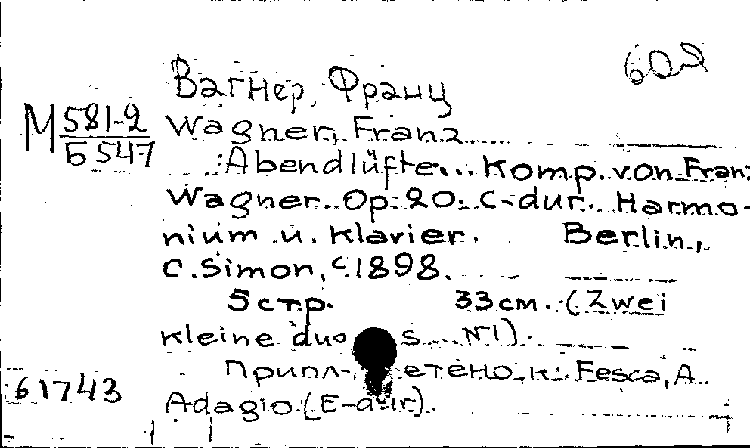 602
Вагнер, Франц
М 581-2
Б 547
Wagner, Franz
Abendlüfte... Komp. von Franz
Wagner. Op. 20. C-dur. Harmo-
nium u. Klavier. Berlin,
C. Simon, c. 1898.
5 стр. 33 см. (Zwei
kleine duos N1).
Приплетено к: Fesca, A.
61743
Adagio (E-dur).